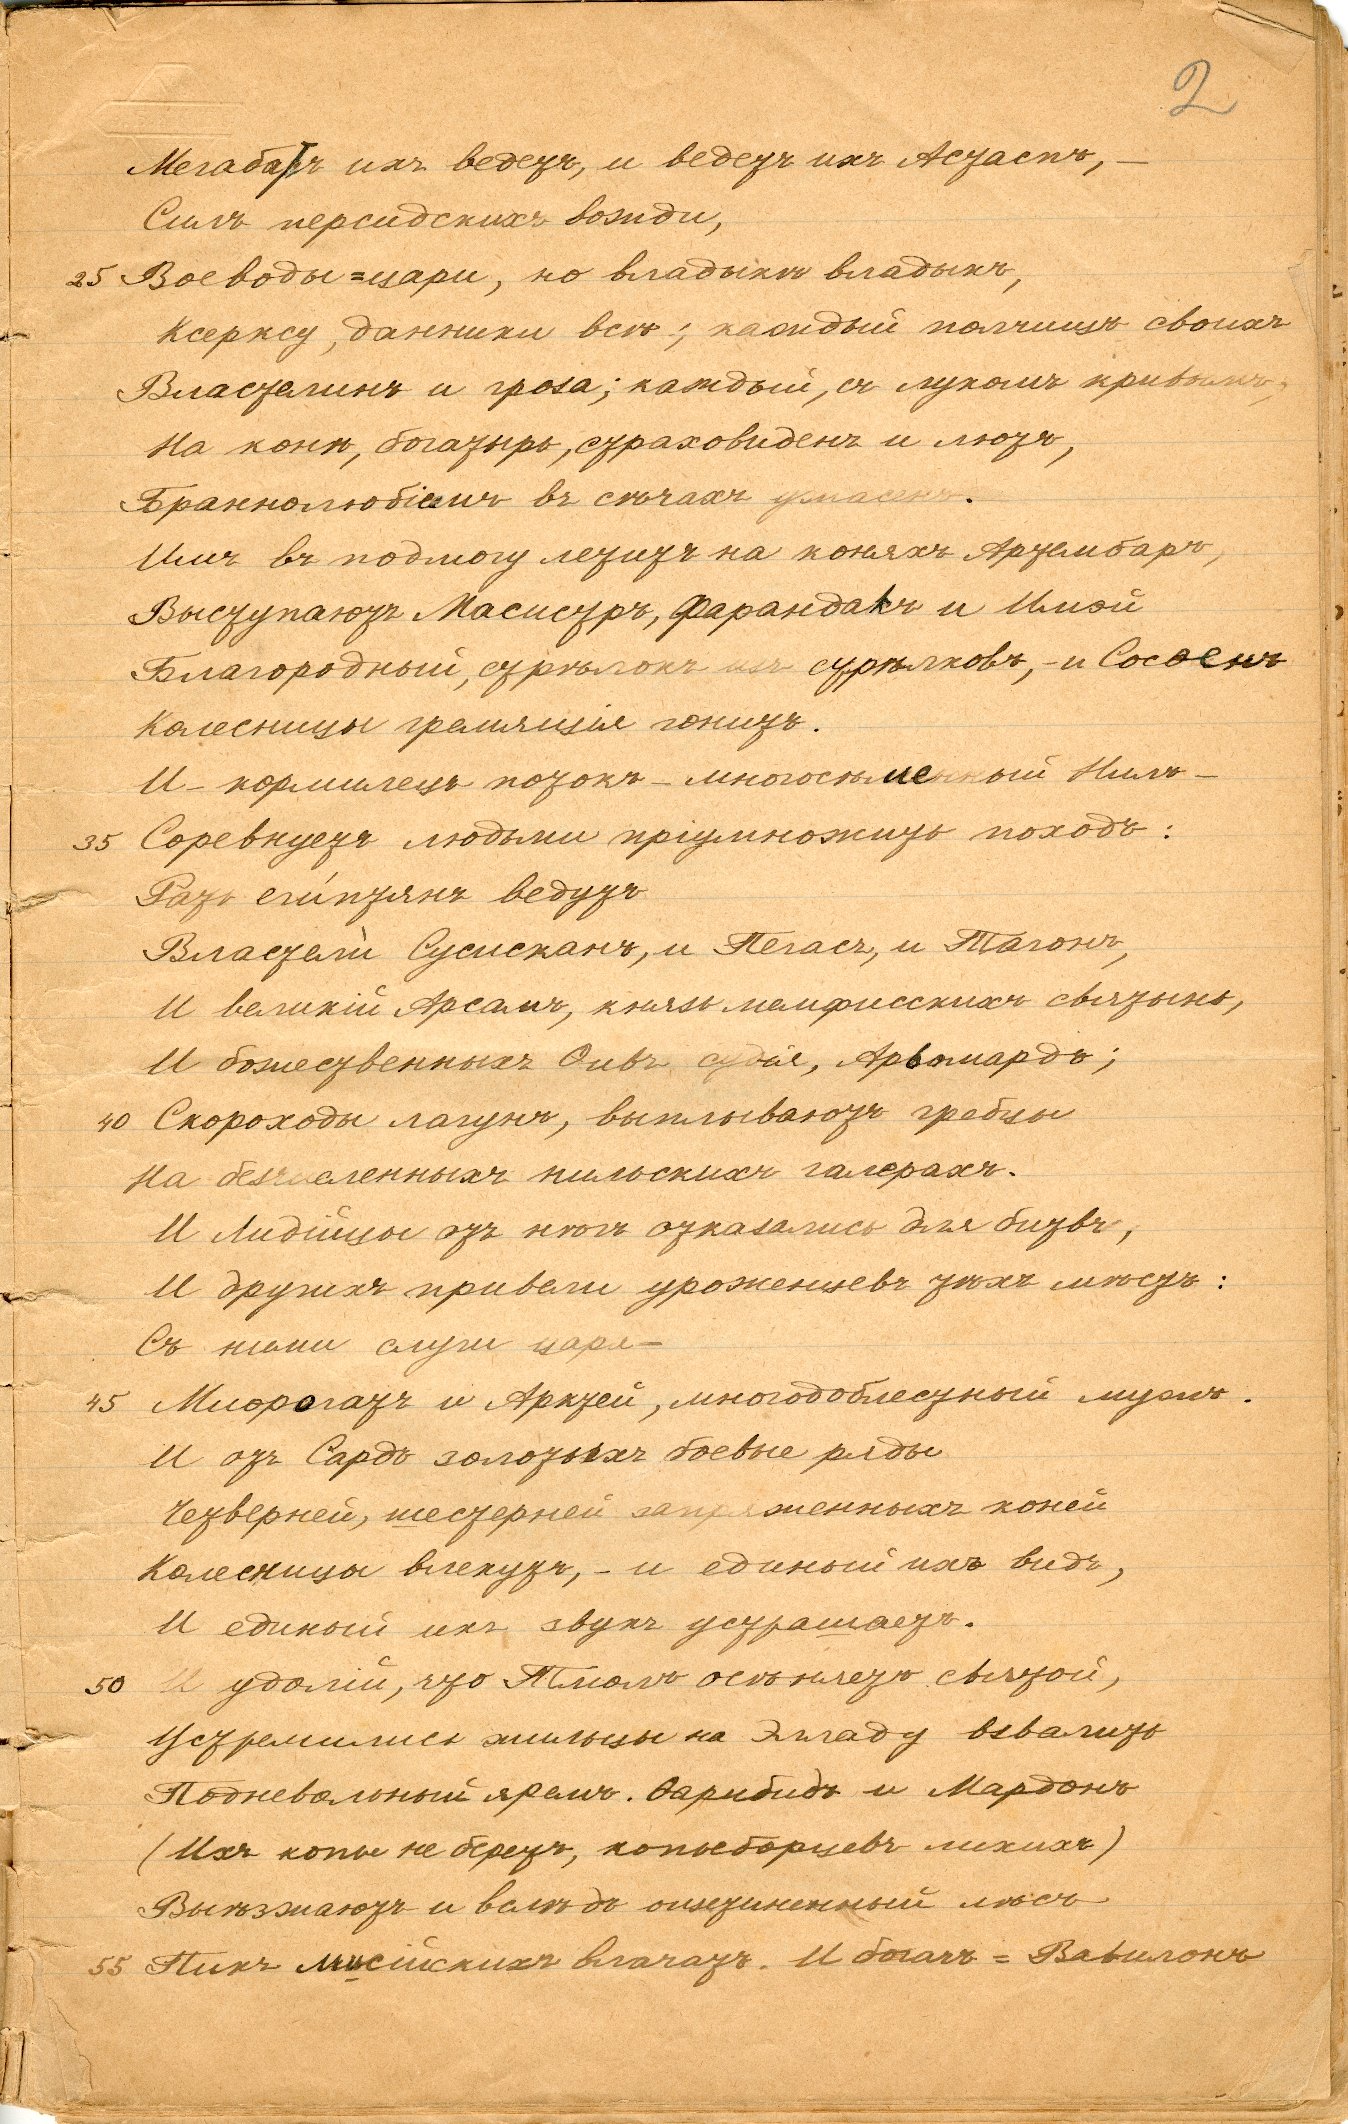 2
Мегабатъ ихъ ведетъ, и ведетъ ихъ Астаспъ, —
Силъ персидскихъ вожди,
25 Воеводы=цари, но владыкѣ владыкъ,
Ксерксу, данники всѣ; каждый полчищъ своихъ
Властелинъ и гроза; каждый, съ лукомъ кривымъ,
На конѣ, богатырь, страховиденъ и лютъ,
Браннолюбіемъ въ сѣчахъ ужасенъ.
Имъ въ подмогу летитъ на коняхъ Артембаръ,
Выступаютъ Масистръ, Фарандакъ и Имэй
Благородный, стрѣлокъ изъ стрѣлковъ, – и Сосѳенъ
Колесницы гремящія гонитъ.
И – кормилецъ потокъ – многосѣменный Нилъ –
35 Соревнуетъ людьми пріумножить походъ:
Рать египтянъ ведутъ
Властели Сусисканъ, и Пегасъ, и Тагонъ,
И великій Арсамъ, князь мемфисскихъ святынь,
И божественныхъ Ѳивъ судія, Арьомардъ;
40 Скороходы лагунъ, выплываютъ гребцы
На безчисленныхъ нильскихъ галерахъ.
И Лидійцы отъ нѣгъ отказались для битвъ,
И другихъ привели уроженцевъ тѣхъ мѣстъ:
Съ ними слуги царя –
45 Миѳрогатъ и Арктей, многодоблестный мужъ.
И отъ Сардъ золотыхъ боевые ряды
Четверней, шестерней запряженныхъ коней
Колесницы влекутъ, – и единый ихъ видъ,
И единый ихъ звукъ устрашаетъ.
50 И удолій, что Тмолъ осѣняетъ святой,
Устремились жильцы на Элладу взвалить
Подневольный яремъ. Ѳарибидъ и Мардонъ
(Ихъ копье не беретъ, копьеборцевъ лихихъ)
Выѣзжаютъ и вслѣдъ ощетиненный лѣсъ
55 Пикъ мисійскихъ влачатъ. И богачъ=Вавилонъ